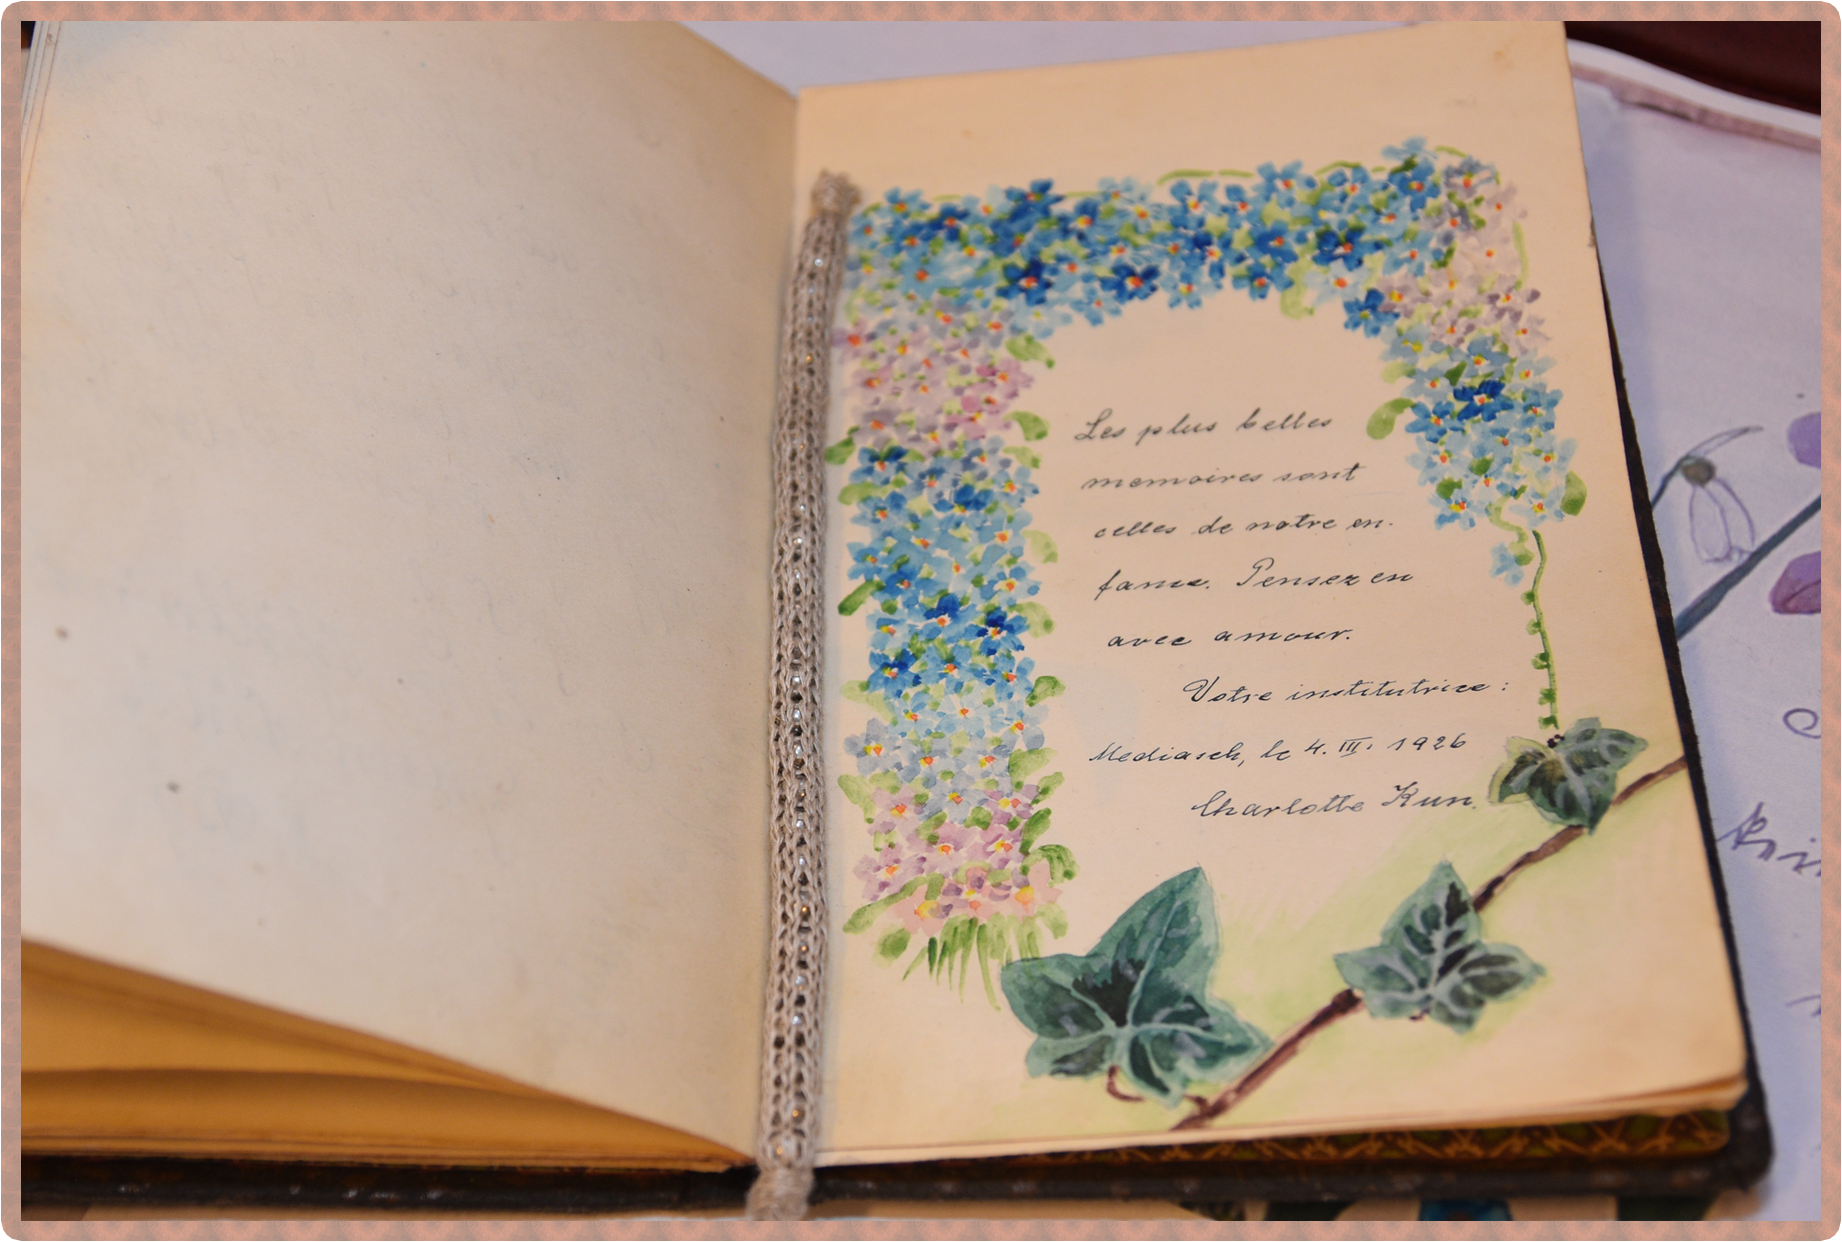 Les plus belles
memoires sont
celles de notre en-
fance. Pensez en
avec amour.
Votre institutrice:
Mediasch, le 4. III. 1926
Charlotte Kun.